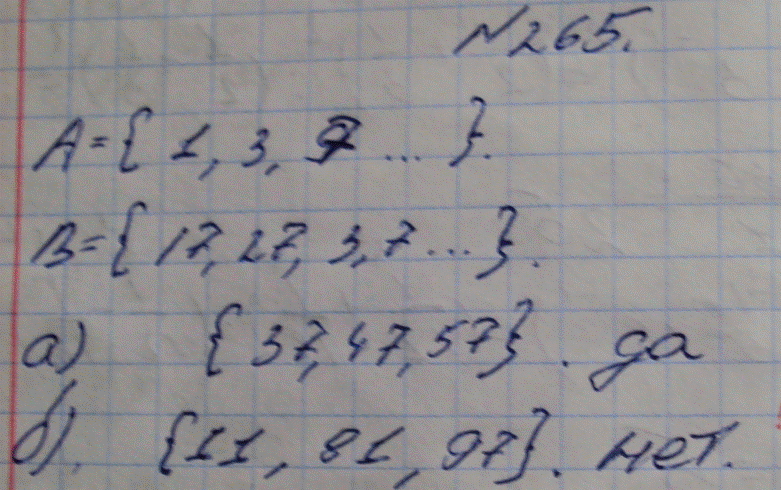 №265.
A={1, 3, 9 ...}.
B={17, 27, 3, 7...}.
а) {37, 47, 57}. да
б). {11, 81, 97}. нет.